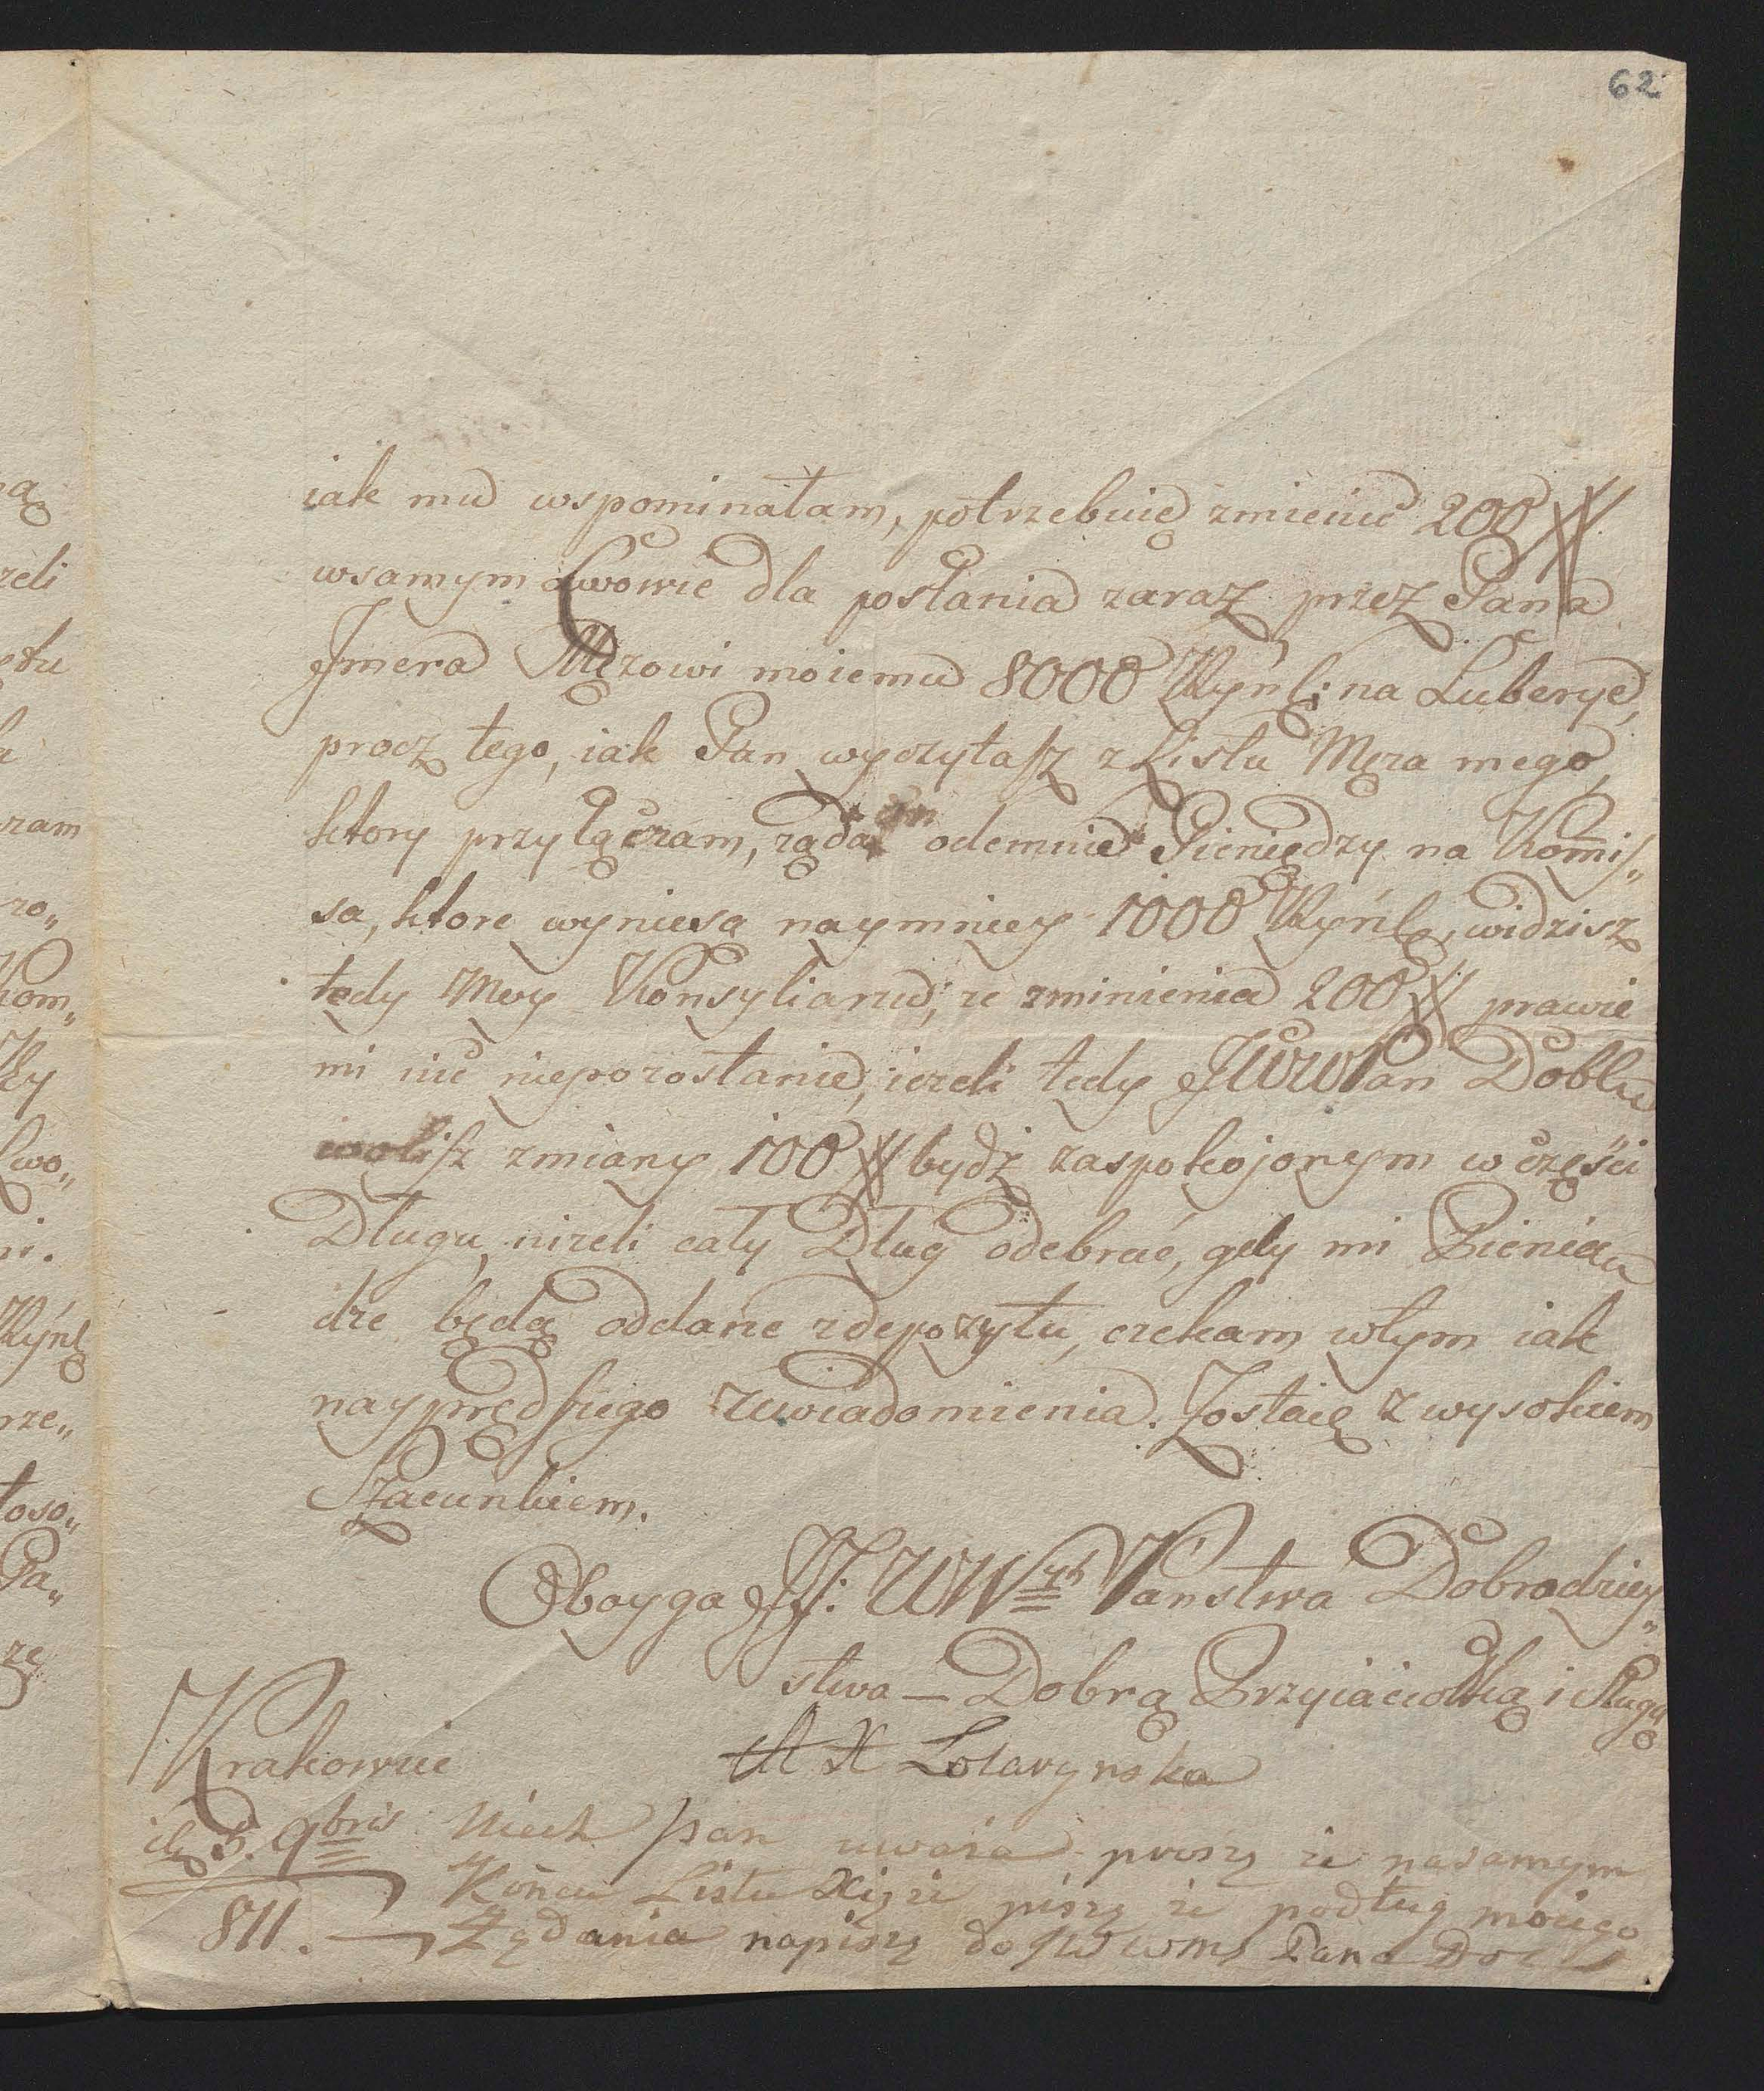 62
iak mu wspominałam, potrzebuię zmienić 200 #
wsamym Lwowie dla posłania zaraz przez Pana
Jmera Mężowi moiemu 8000 Ryńl: na Luberyę,
procz tego, iak Pan wyczytasz z Listu Męża mego,
ktory przyłączam, rąda odemnie Pieniędzy na Kommis„
sa, ktore wyniesą naymniey 1000 Ryńl, widzisz
tedy Mcy Konsyliarzu; że zminienia 200 # prawie
mi nic niepozostanie, ieżeli tedy JWWPan Doblu
wolisz zmiany 100 # bydź zaspokojonym w części
Długu, niżeli cały Dług odebrać, gdy mi Pienią„
dze będą oddane zdepozytu, czekam wtym iak
nayprędszego zawiadomienia. Zostaię z wysokiem
Szacunkiem.
Oboyga JJ: WWych Państwa Dobrodziey„
stwa — Dobrą Przyiaciołką i Sługą
Krakowie
M X Lotaryńska
d. 5. 9bris Niech Pan uważa proszę że nasamym
Końcu Listu Xiąże piszę że podług moiego
811. Żądania napiszę do JWWMs Pana Do
ą
żeli
ętu
a
zam
zo„
Kom„
Ry
Lwo„
ni.
Ryńl
rze„
łoso„
Pa„
zę